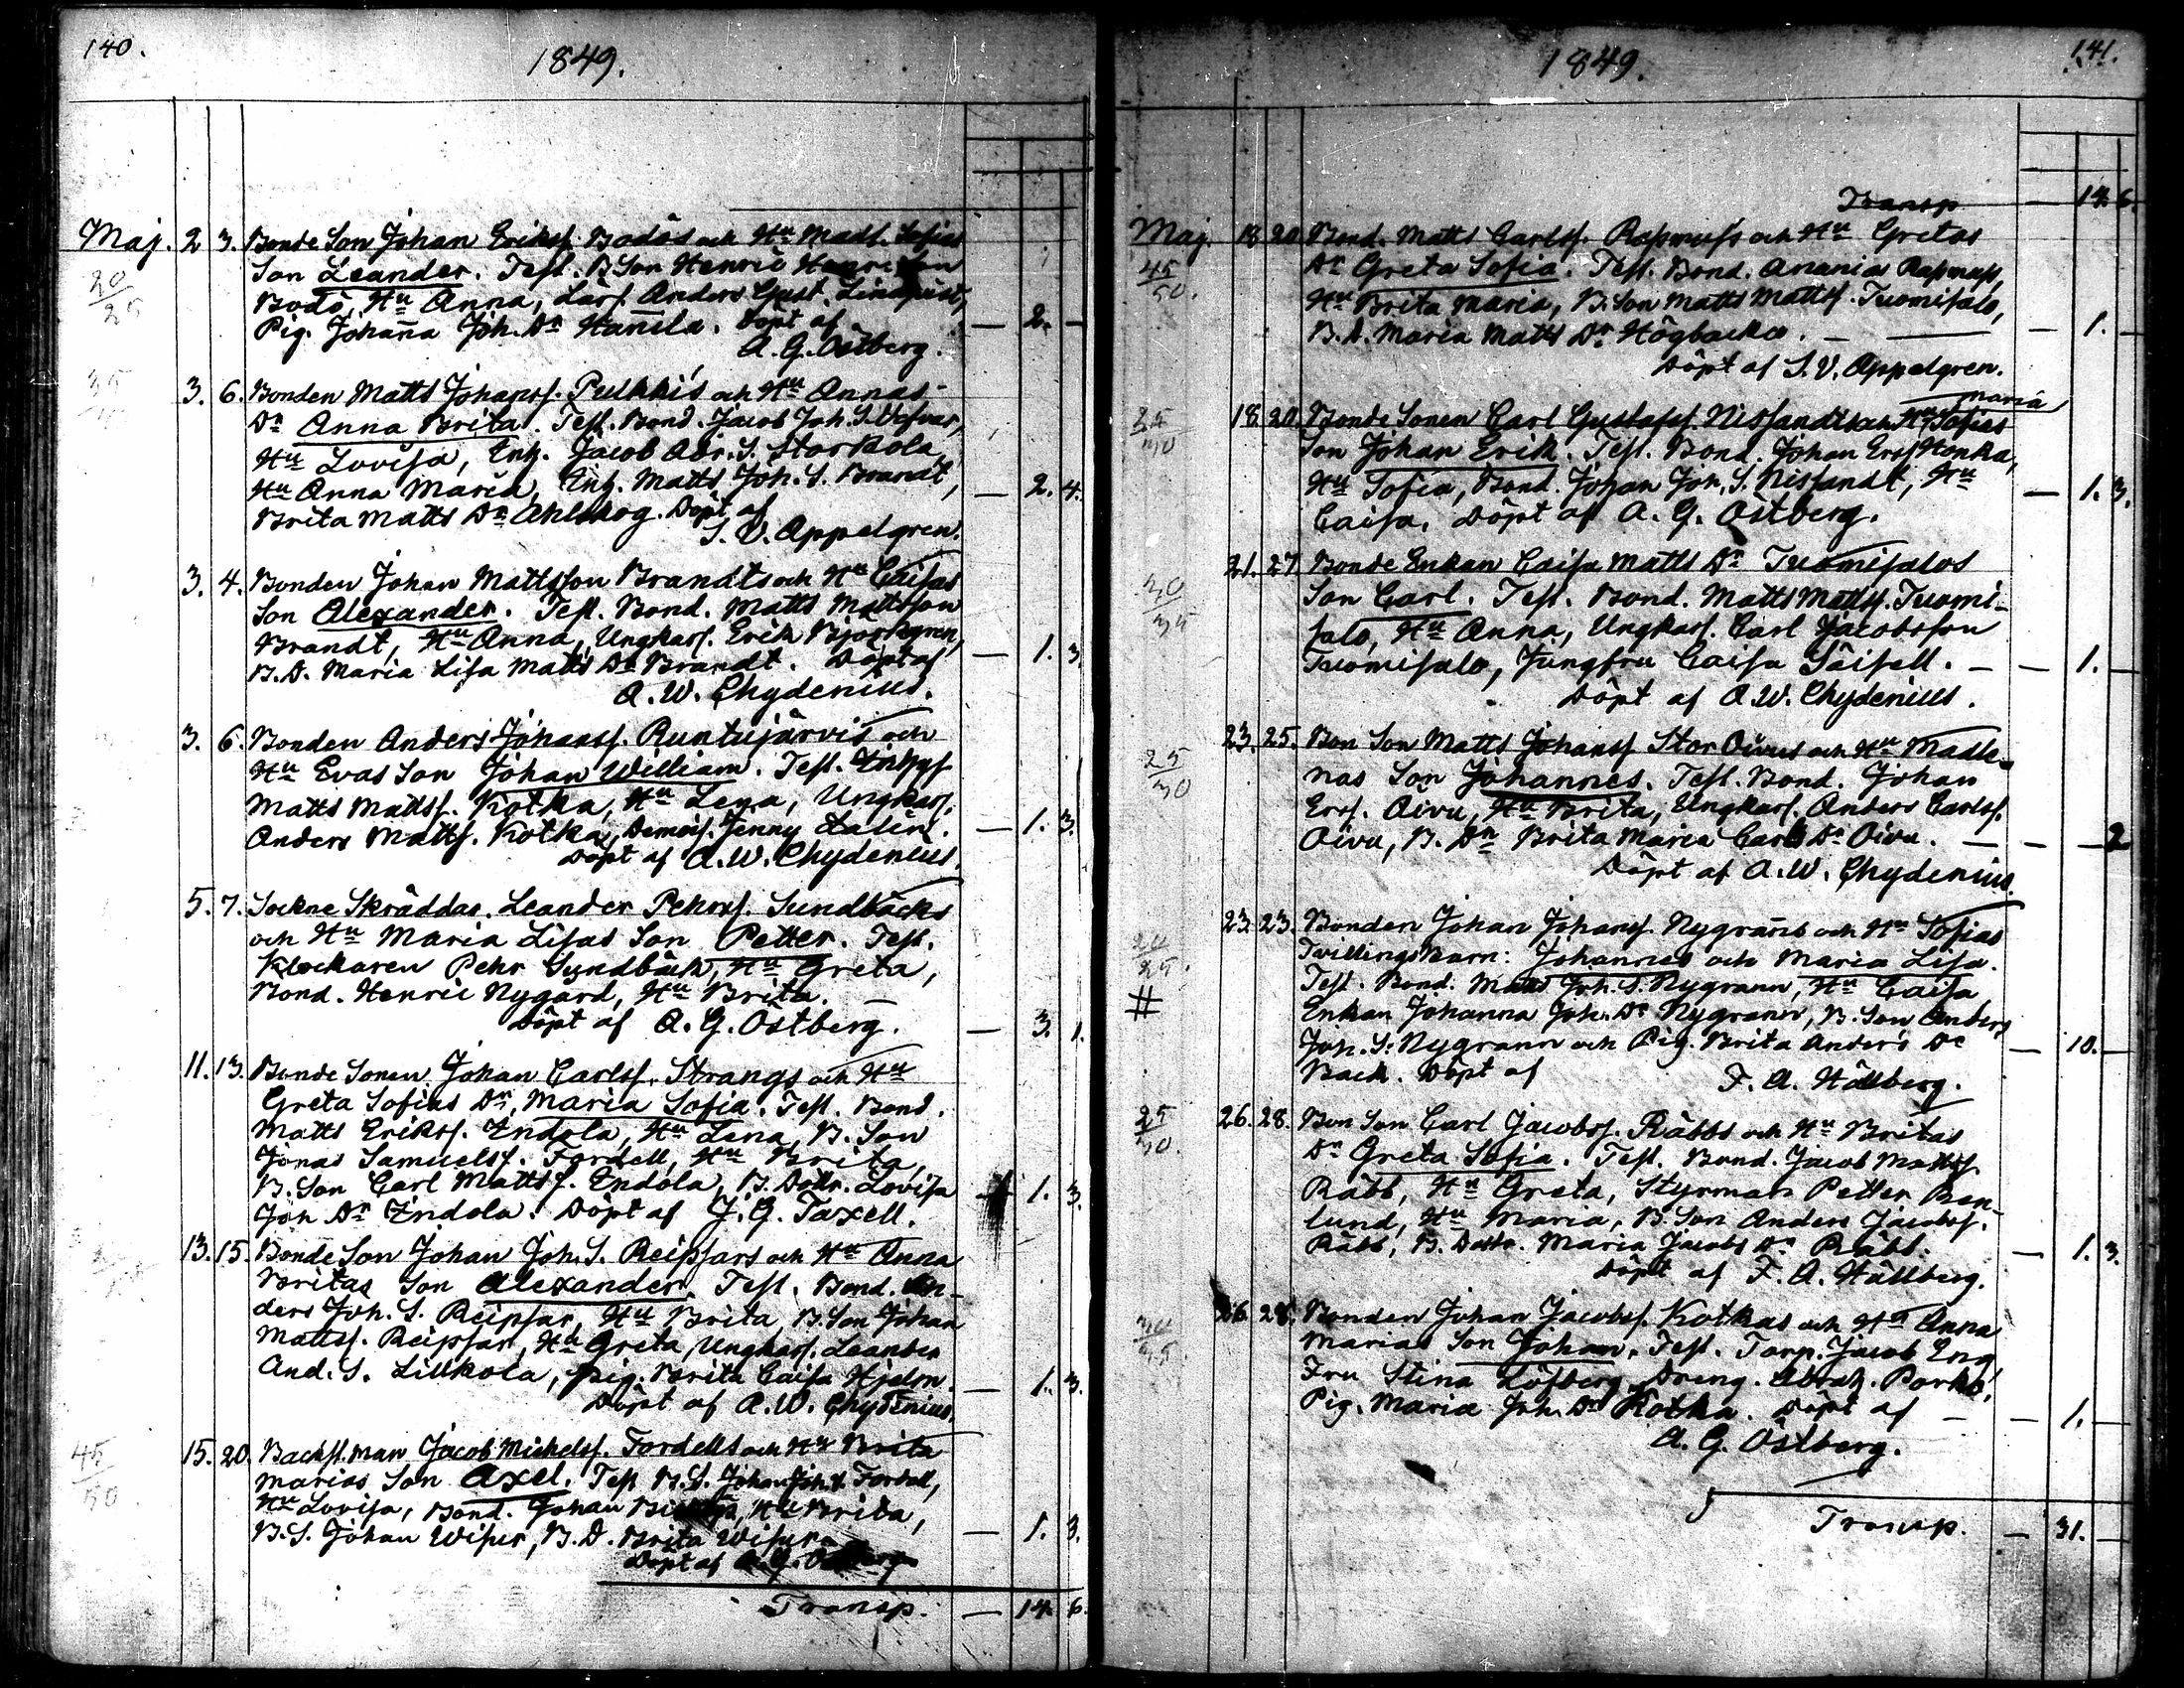 140.
1849.
Maj. 2 3. Bonde Son Johan Erikss. Bodös och Hu Madl. Sofias
20/25 Son Leander. Test. B. Son Henric
Bodö, Hu Anna, Lärf. Anders Gust. Lindqvist,
Pig. Johanna Joh. Dr Hannila. Döpt af — 2. —
A. G. Östberg.
3. 6. Bonden Matts Johanss. Pulkkis och Hu Annas
35 Dr Anna Brita. Test. Bond. Jacob Joh. S.
Hu Lovisa, Enk. Jacob Abr. S. Storkola,
Hu Anna Maria, Enk. Matts Joh. S. Brandt, — 2. 4.
Brita Matts Dr Ahlskog. Döpt af
S. V. Appelgren.
3. 4. Bonden Johan Mattsson Brandts och Hu Caisas
Son Alexander. Test. Bond. Matts Mattsson
Brandt, Hu Anna, Ungkarl. Erik Björkgren,
B. D. Maria Lisa Matts Dr Brandt. Döpt af — 1. 3.
A. W. Chydenius.
3. 6. Bonden Anders Johanss. Runtujärvis och
Hu Evas Son Johan William. Test.
Matts Mattss. Kotka, Hu Lena, Ungkarl.
Anders Mattss. Kotka, Demois. Jenny Dalin. — 1. 3.
Döpt af A. W. Chydenius.
5. 7. Sockne Skräddar. Leander Pehrss. Sundbäcks
och Hu Maria Lisas Son Petter. Test.
Klockaren Pehr Sundbäck, Hu Greta,
Bond. Henric Nygård, Hu Brita. —
Döpt af A. G. Östberg. — 3. 1.
11. 13. Bonde Sonen Johan Carlss. Strangs och Hu
Greta Sofias Dr Maria Sofia. Test. Bond.
Matts Erikss. Indola, Hu Lena, B. Son
Jonas Samuelss. Fordell, Hu Brita,
B. Son Carl Mattss. Indola, B. Dottr. Lovisa — 1. 3.
Joh. Dr Indola. Döpt af J. G. Taxell.
13. 15. Bonde Son Johan Joh. S. Reipsars och Hu Anna
Britas Son Alexander. Test. Bond. An-
ders Joh. S. Reipsar, Hu Brita, B. Son Johan
Mattss. Reipsar, Hu Greta, Ungkarl. Leander
And. S. Lillkola, Pig. Brita Caisa Hjelm. — 1. 3.
Döpt af A. W. Chydenius.
15. 20. Backst. man Jacob Michelss. Fordells och Hu Brita
45/50 Marias Son Axel. Test. B. S. Johan Joh. S. Fordell,
Hu Lovisa, Bond. Johan Hu Brita,
B. S. Johan Wiser, B. D. Brita Wiser. — 1. 3.
Döpt af A. G. Östberg
Transp. — 14. 6.
1849.
141.
Transp — 14. 6.
Maj. 18 20 Bond. Matts Carlss. Rasmuss och Hu Gretas
45/50. Dr Greta Sofia. Test. Bond. Anania Rasmuss,
Hu Brita Maria, B. Son Matts Mattss. Tuomisalo,
B. D. Maria Matts Dr Högbacka. — 1. —
Döpt af S. V. Appelgren.
Maria
18. 20. Bonde Sonen Carl Gustafss. Nissandts och Hu Sofias
25/30 Son Johan Erik. Test. Bond. Johan Erss. Honka,
Hu Sofia, Bond. Johan Joh. S. Nissandt, Hu — 1. 3.
Caisa. Döpt af A. G. Östberg.
21. 27. Bonde Enkan Caisa Matts Dr Tuomisalos
30/35 Son Carl. Test. Bond. Matts Mattss. Tuomi-
salo, Hu Anna, Ungkarl. Carl Jacobsson
Tuomisalo, Jungfru Caisa Säisell. — 1. —
Döpt af A. W. Chydenius.
23. 25. Bon Son Matts Johanss. Stor Oivus och Hu Madle-
25/30 nas Son Johannes. Test. Bond. Johan
Erss. Oivu, Hu Brita, Ungkarl. Anders Carlss.
Oivu, B. Dr Brita Maria Carls Dr Oivu. — — 2
Döpt af A. W. Chydenius.
23. 23. Bonden Johan Johanss. Nygranns och Hu Sofias
24/25. Tvillings Barn: Johannes och Maria Lisa.
# Test. Bond. Matts Joh. S. Nygrann, Hu Caisa,
Enkan Johanna Joh. Dr Nygrann, B. Son Anders
Joh. S. Nygrann och Pig. Brita Anders Dr — 10. —
Back. Döpt af
F. A. Hällberg.
26. 28. Bon Son Carl Jacobss. Räbbs och Hu Britas
25/30. Dr Greta Sofia. Test. Bond. Jacob Mattss.
Räbb, Hu Greta, Styrman Petter Ren-
lund, Hu Maria, B. Son Anders Jacobss.
Räbb, B. Dottr. Maria Jacobs Dr Räbb. — 1. 3.
Döpt af F. A. Hällberg.
26. 28. Bonden Johan Jacobss. Kotkas och Hu Anna
Marias Son Johan. Test. Torp. Jacob Eng,
Fru Stina Löfberg, Dreng. Abrah. Porko,
Pig. Maria Joh. Dr Kotka. Döpt af — 1. —
A. G. Östberg.
Transp. — 31. —